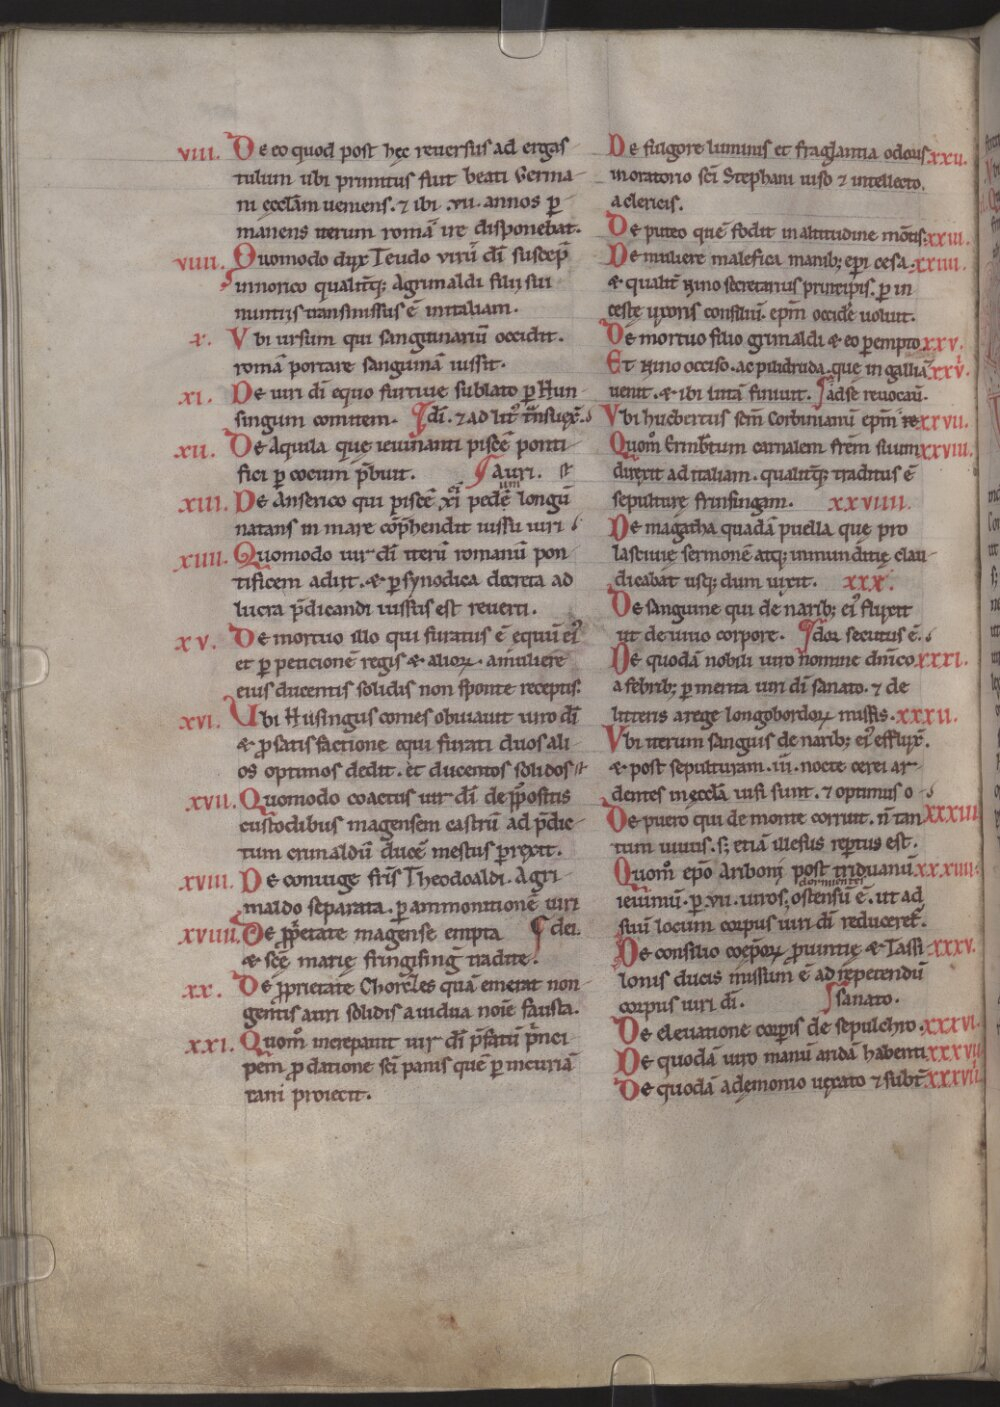 VIII. De eo quod post hęc reuersus ad ergas
tulum ubi primitus fuit beati Germa
ni ęccłam ueniens. ⁊ ibi .VII. annos ꝑ
manens iterum romā ire disponebat.
VIIII. Quomodo dux Teudo virū dī suscep̄
innorico qualit̄q; Agrimaldi filii sui
nuntiis transmissus ē initaliam.
X. Vbi ursum qui sanguinariū occidit.
romā portare sangumā iussit.
XI. De uiri dī equo furtiue sublato ꝑ Hun
singum comitem.
XII. De Aquila que ieiunanti piscē ponti
fici ꝑ cocum p̄buit. Auri.
XIII. De Anserico qui piscē XI pedē longū
um
natans in mare cōp̄hendit iussu uiri
XIIII. Quomodo uir dī iterū romanū pon
tificem adiit. & ꝑ synodica decreta ad
lucra p̄dicandi iussus est reuerti.
XV. De mortuo illo qui furatus ē equū ei᾿
et ꝑ peticionē regis & alioꝝ. amuliere
eius ducentis solidis non sponte receptis.
XVI. Vbi Husingus comes obuiauit uiro dī
& ꝓ satisfactione equi furati duos ali
os optimos dedit. et ducentos solidos
XVII. Quomodo coactus uir dī de p̄positis
custodibus magensem castrū ad p̄dic
tum crimaldū ducē mestus ꝑrexit.
XVIII. De coniuge fr̄is Theodoaldi. Agri
maldo separata. ꝑ ammonitionē uiri
XVIIII. De ꝓp̄etate magense empta dei.
& scē marię fringising tradite.
XX. De proprietate Chorcles quā emerat non
gentis auri solidis a uidua noīe fausta.
XXI. Quom̄ increpauit uir dī p̄fatū p̄nci
pem ꝓ datione sci panis quē ꝑ incuriā
cani proiecit.
De fulgore luminis et fraglantia odoris XXII.
inoratorio sci Stephani uiso ⁊ intellecto.
a clericis.
De puteo quē fodit in altitudine mōtis. XXIII.
De muliere malefica manib; ep̄i cesa. XXIIII.
& qualit̄ Nino secretarius principis. ꝑ in
cestę uxoris consiliū. epm̄ occidere uoluit.
De mortuo filio grimaldi & eo ꝑempto XXV.
Et Nino occiso. ac piltdruda. que in galliā XXVI.
uenit. & ibi uitā finiuit. adse reuocaū.
Vbi hucbertus scm̄ Corbinianū epm̄ XXVII.
Quom̄ Ermbtum carnalem frēm suum XXVIII.
duxerit ad italiam. qualit̄q; traditus ē
sepulturę frinsingam. XXVIIII.
De magatha quadā puella que pro
lasciuię sermonē atq; inmunditię clau
dicabat usq; dum uixit. XXX.
De sanguine qui de narib; ei᾿ fluxit
ut de uiuo corpore. secutus ē.
De quodā nobili uiro nomine dn̄ico XXXI.
a febrib; ꝑ merita uiri dī sanato. ⁊ de
litteris a rege longobardoꝝ missis. XXXII.
Vbi iterum sanguis de narib; ei᾿ effluxit.
& post sepulturam .III. nocte cerei ar
dentes in ęccła uisi sunt. ⁊ optimus o
De puero qui de monte corruit. n̄ tan XXXIII
tum uiuus. s; etiā illesus reꝑtus est.
Quom̄ epō Ariboni post triduanū XXXIIII.
dormientei
ieiuniū. ꝑ .VII. uiros; ostensū ē. ut ad
suū locum corpus uiri dī reduceret̄.
De consilio coep̄oꝝ ꝓuintię & Tassi XXXV.
lonis ducis missum ē ad repetendū
corpus uiri dī. sanato.
De eleuatione corꝑis de sepulchro. XXXVI.
De quodā uiro manū aridā habenti XXXVII
De quodā a demonio uexato ⁊ subt̄ XXXVIII.